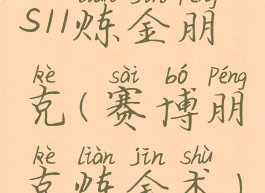 S11炼金朋
kè sài bó Péng
克(赛博朋
kè liàn jīn shù
克炼金术)